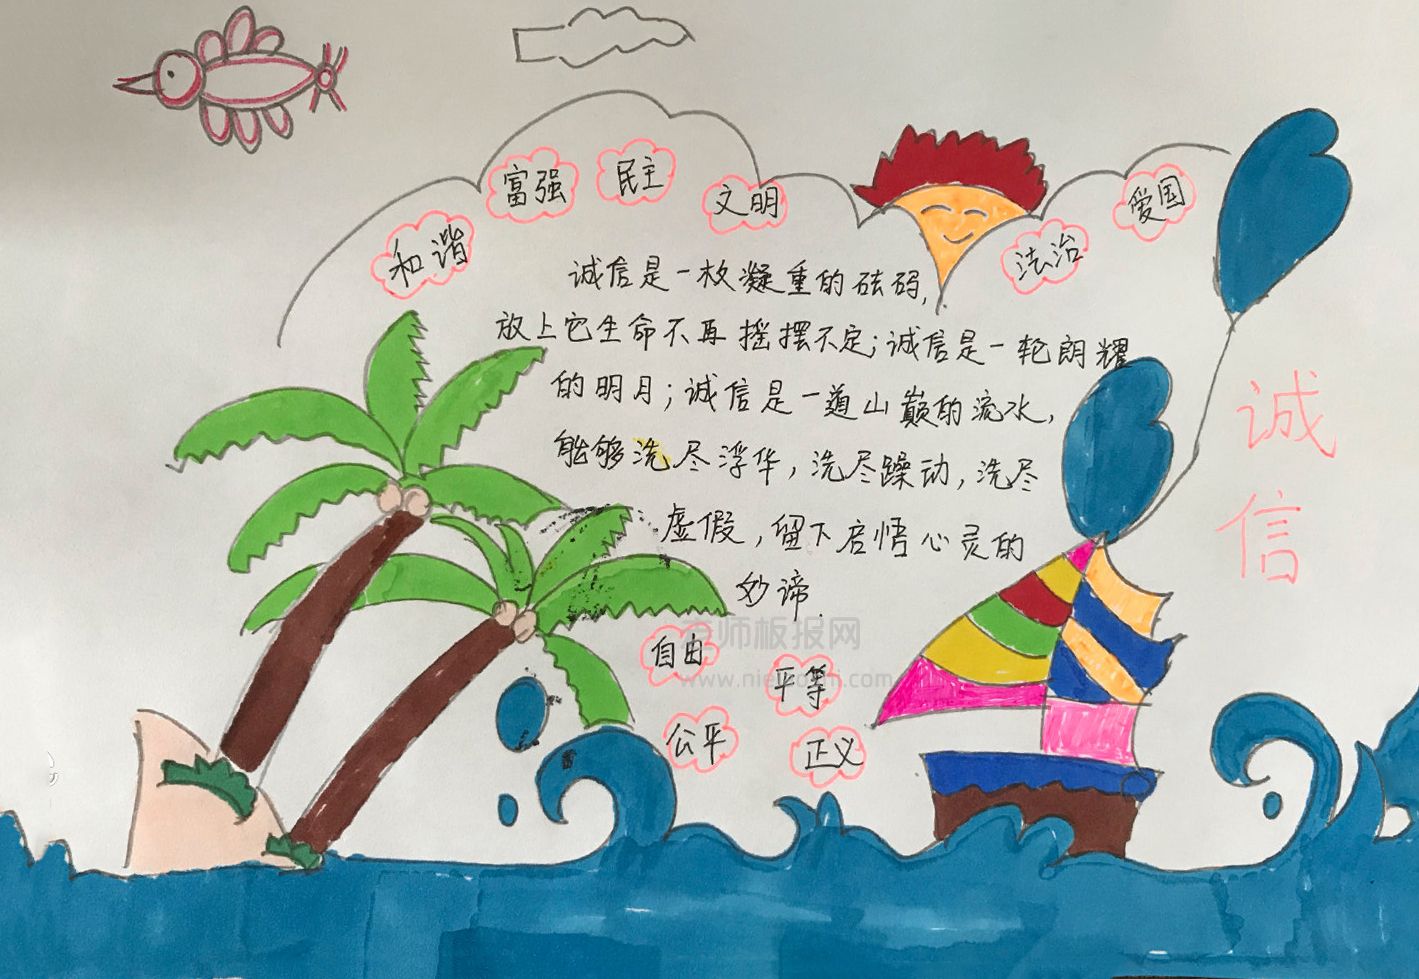 富强 民主 文明 爱国
和谐 法治
诚信是一枚凝重的砝码,
放上它生命不再摇摆不定;诚信是一轮朗耀
的明月;诚信是一道山巅的流水,
能够洗尽浮华,洗尽躁动,洗尽
虚假,留下启悟心灵的
妙谛.
诚
信
师板报网
自由
平等
公平
正义